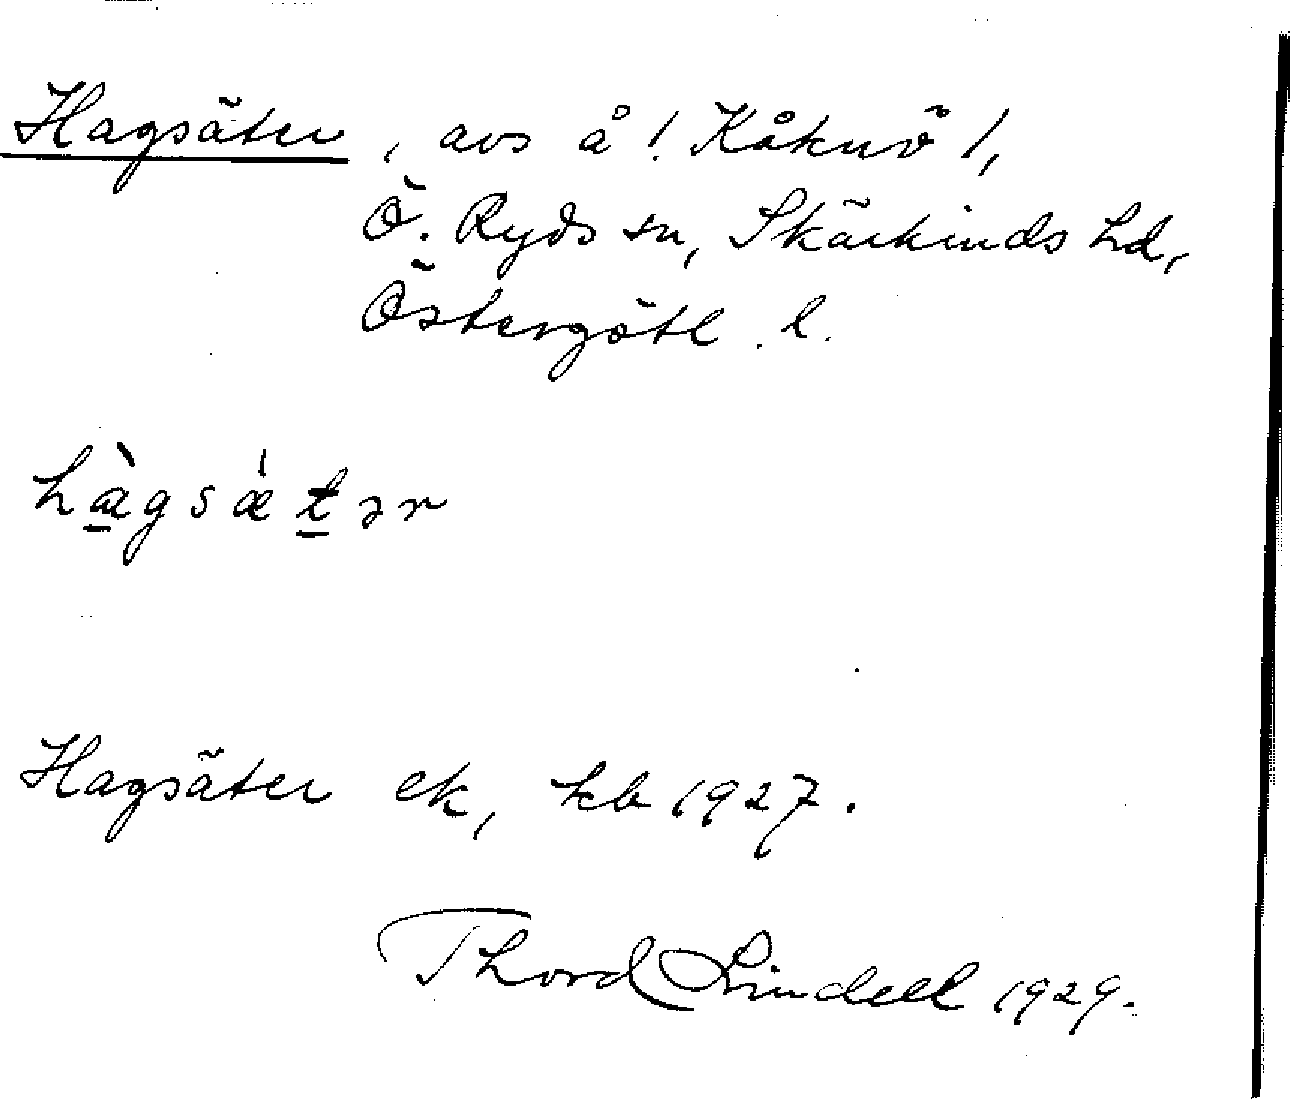 Hagsäter, avs å! Kåknö!,
Ö. Ryds sn, Skärkinds hd,
Östergötl. l.
hàgsǽtər
Hagsäter ek, kb 1927.
Thord Lindell 1929.